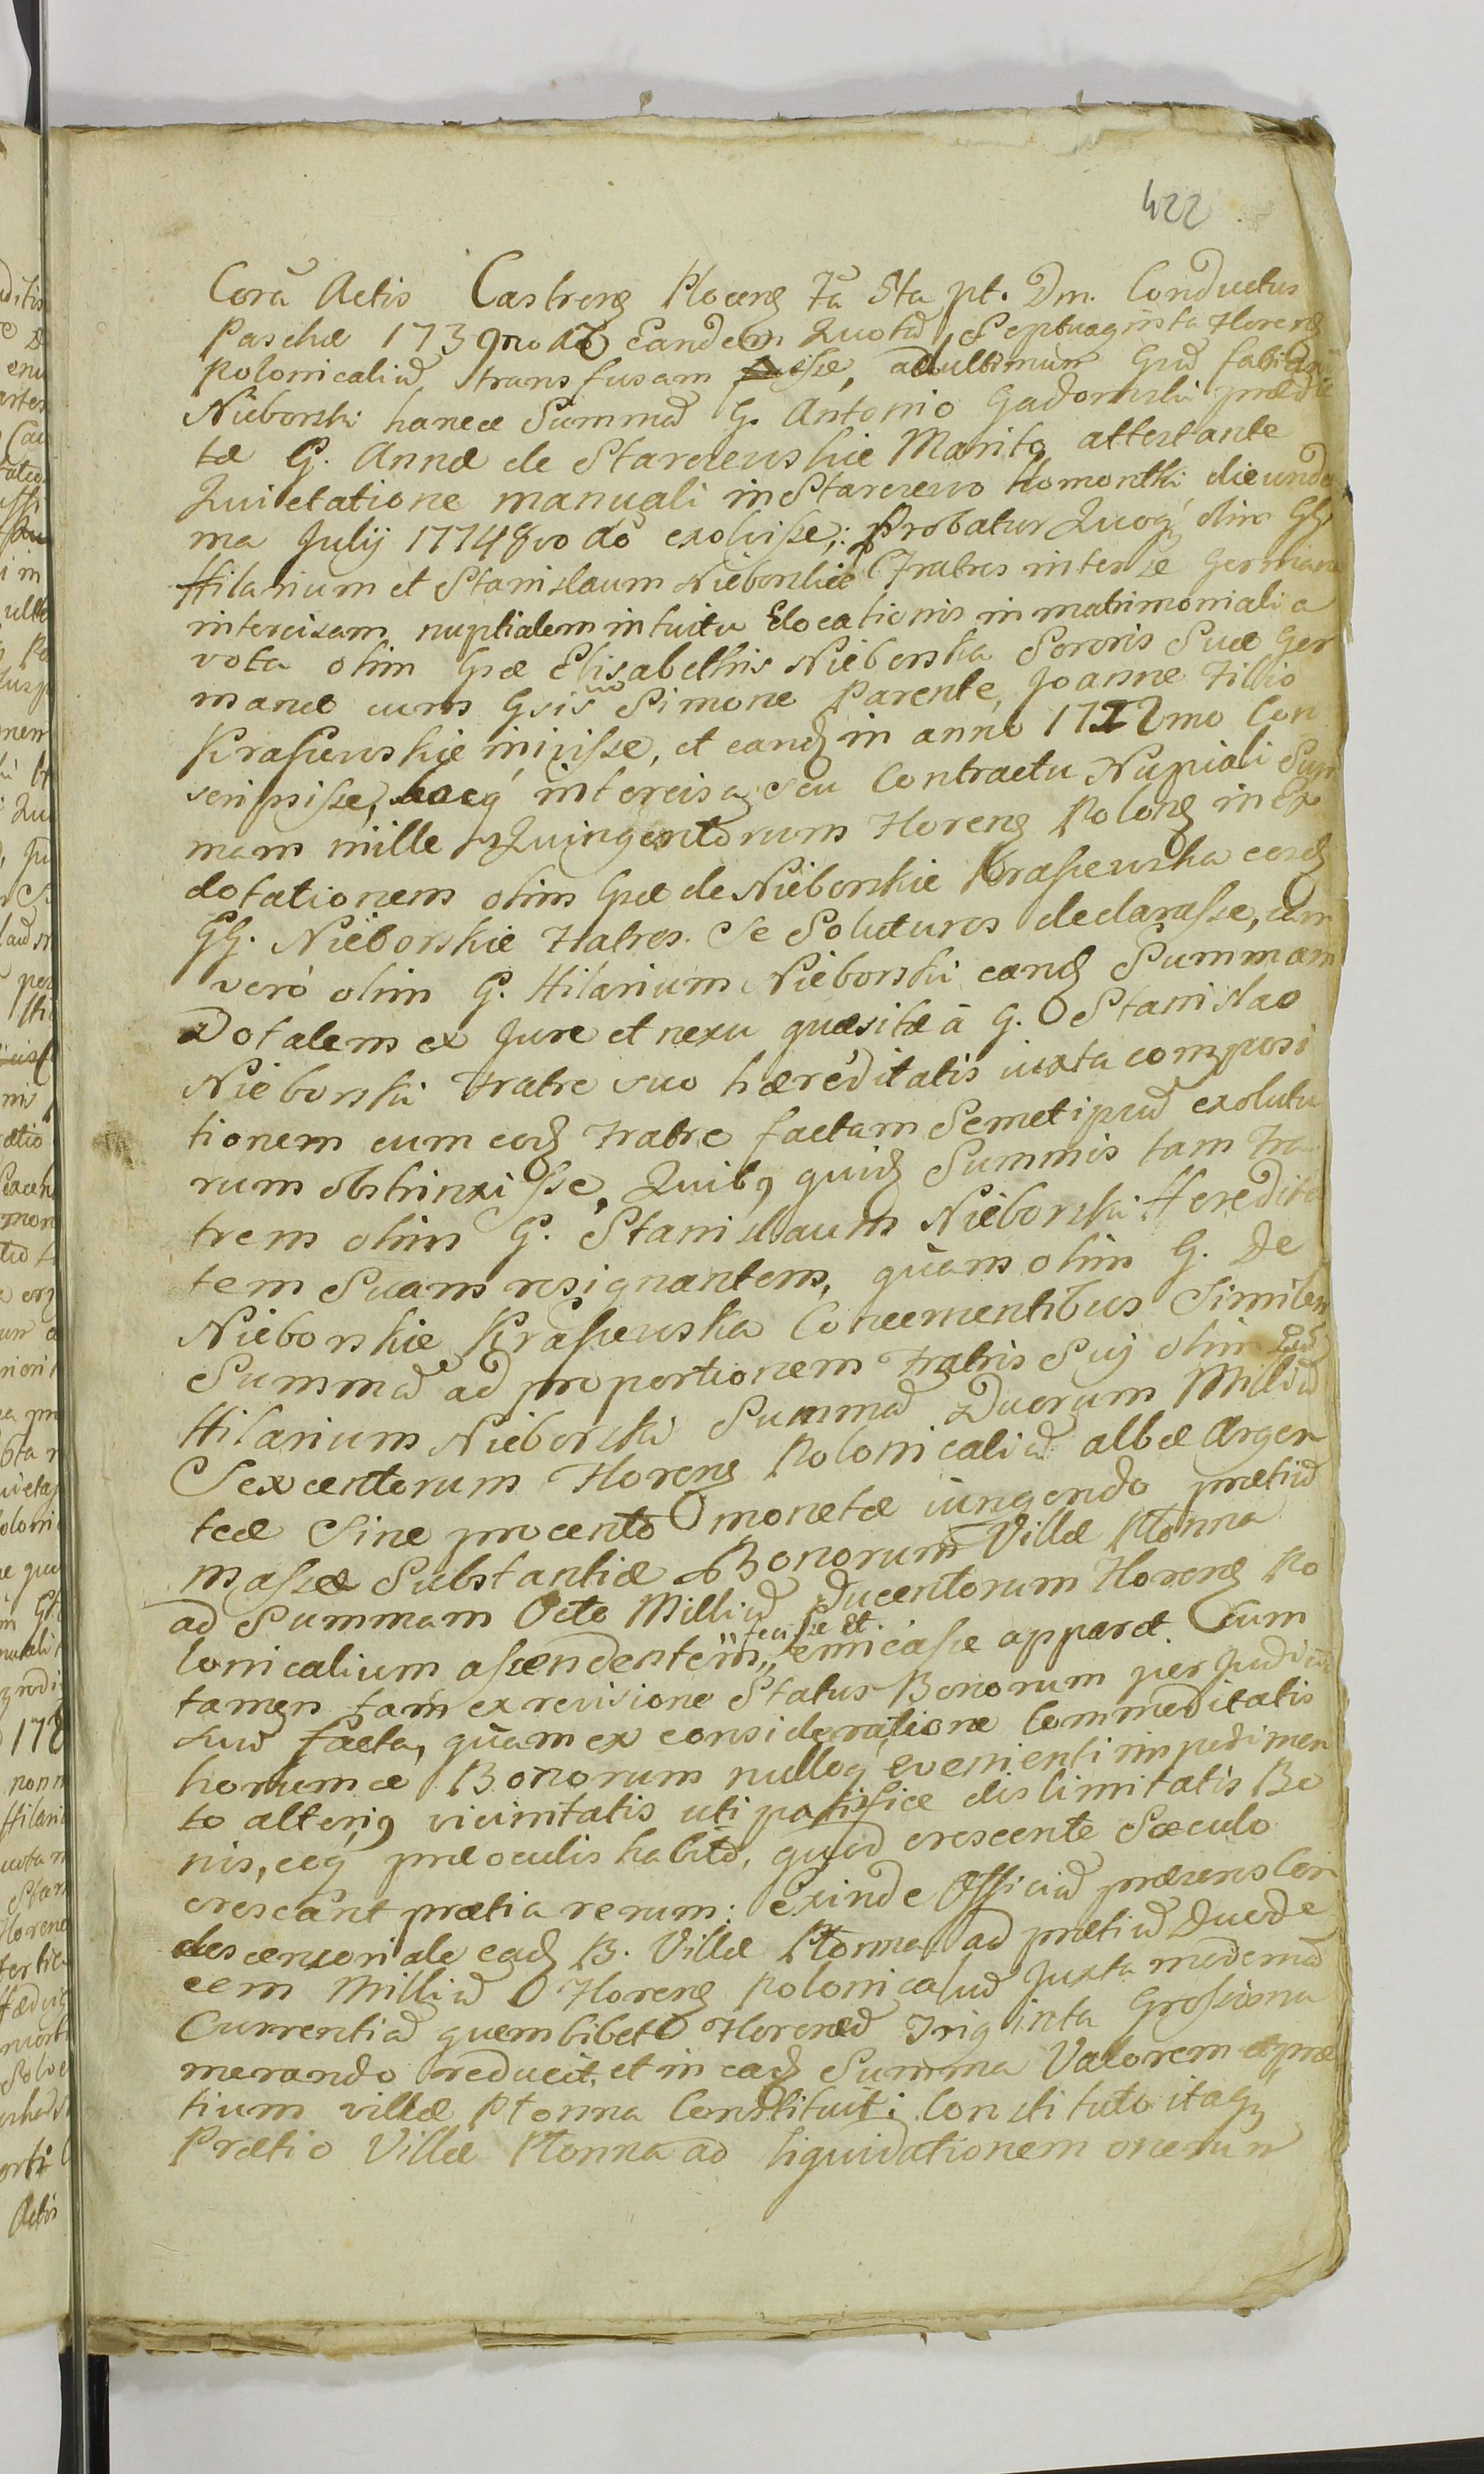 422
Corã Actis Castreng Ploceng Fã 5ta pt. Dm. Conductus
Paschæ 1739no aõ Eandem Quotã Septuaginta Floreng
Polonicaliũ transfusam fuisse, ad ultimum Gsũ Fabianũ
Nieborski hancce Summã G. Antonio Gadomski prædic
tæ G. Annæ de Starorewskie Marito attestante
Quietatione manuali in Starczewo Komontki die unde
ma Julij 1774 8vo aõ exolvisse; Probatur Quoq olim GG.
Hilarium et Stanislaum Nieborskie Fratres inter se Germano
intercisam nuptialem intuitu Elocationis in matrimonialia
vota olim Gsæ Elisabethis Nieborska Sororis Suæ Ger
manæ cum Gsis Simone Parente, Joanne Fillio
Krasiewskie inivisse, et eandg in anno 1722mo Con
scripsisse, eacq intercisa, seu Contractu Nupiali Sum
mam mille Quingentorum Floreng Polong in Ex
dotationem olim Gsæ de Nieborskie Krasiewska eosdg
GG. Nieborskie Fratres Se Soluturos declarasse, cum
verò olim G. Hilarium Nieborski eandg Summam
Dotalem ex Jure et nexu quæsitæ à G. Stanislao
Nieborski Fratre suo hæreditatis iuxta composi
tionem cum eodg Fratre factam Semetipsũ exolutu
rum obstrinxisse, Quibg quidg Summis tam Fra
trem olim G. Stanislaum Nieborski Heredita
tem Suam resignantem, quàm olim G. De
Nieborskie Krasiewska Concernentibus Similem
Summã ad proportionem Fratris Sui olim Gsũ
Hilarium Nieborski Summã Duorum Milliũ
Sexcentorum Floreng Polonicaliũ albæ Argen
teæ Sine procento monetæ iungendo prætiũ
massæ Substantiæ Bonorum Villæ Płonna
ad Summam Octo Milliũ Ducentorum Floreng Po
lonicalium ascendentem, fecisse et emicasse apparet. Cum
tamen tam ex revisione Status Bonorum per Judiciũ
suũ facta, quàm ex consideratione Commeditatis
horumce Bonorum nulloq evenienti impedimen
to alterig vicinitatis uti patifice dislimitatis Bo
nis, eoq præ oculis habito, quod crescente Sæculo
crescant prætia rerum: Exinde Officiũ præsens Con
descensoriale eadg B. Villæ Płonna ad prætiũ Duode
cem Milliũ Floreng Polonicaliũ Juxta modernã
Currentiã quemlibet Florenũ Triginta Grossis nu
merando reducit, et in eadg Summa Valorem et præ
tium villæ Płonna Constituit; Constituto itaq
Prætio Villæ Płonna ad liquidationem onerum